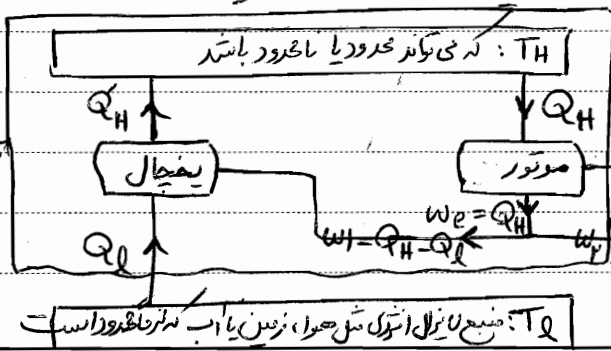 TH : که می تواند محدود یا نامحدود باشد
QH QH
یخچال موتور
We = QH
W1 = QH - Ql W2
Ql
Tl : منبع لایزال انرژی مثل هوا، زمین یا آب که نامحدود است